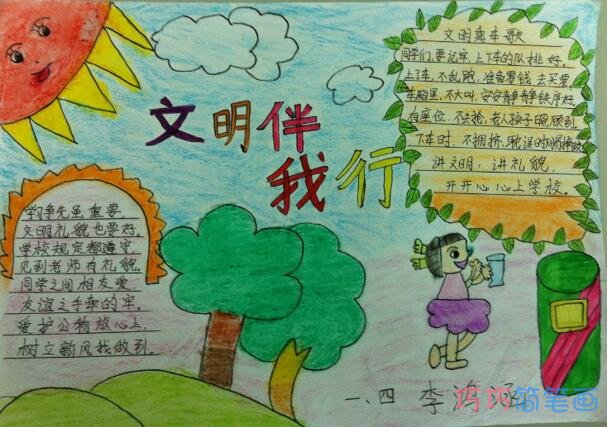 文明伴
我行
文明乘车歌
同学们,要记牢,上下车的队排好。
上了车,不乱跑,准备零钱去买票。
车厢里,不大叫,安安静静秩序好。
有座位,不去抢,老人孩子照顾到。
下车时,不拥挤,耽误时间
讲文明,讲礼貌,
开开心心上学校。
学习虽重要,
文明礼貌也要好。
学校规定都遵守,
见到老师有礼貌,
同学之间相友爱,
友谊之手牵的牢。
爱护公物放心上,
树立新风我做到。
一、四 李鸿
简笔画